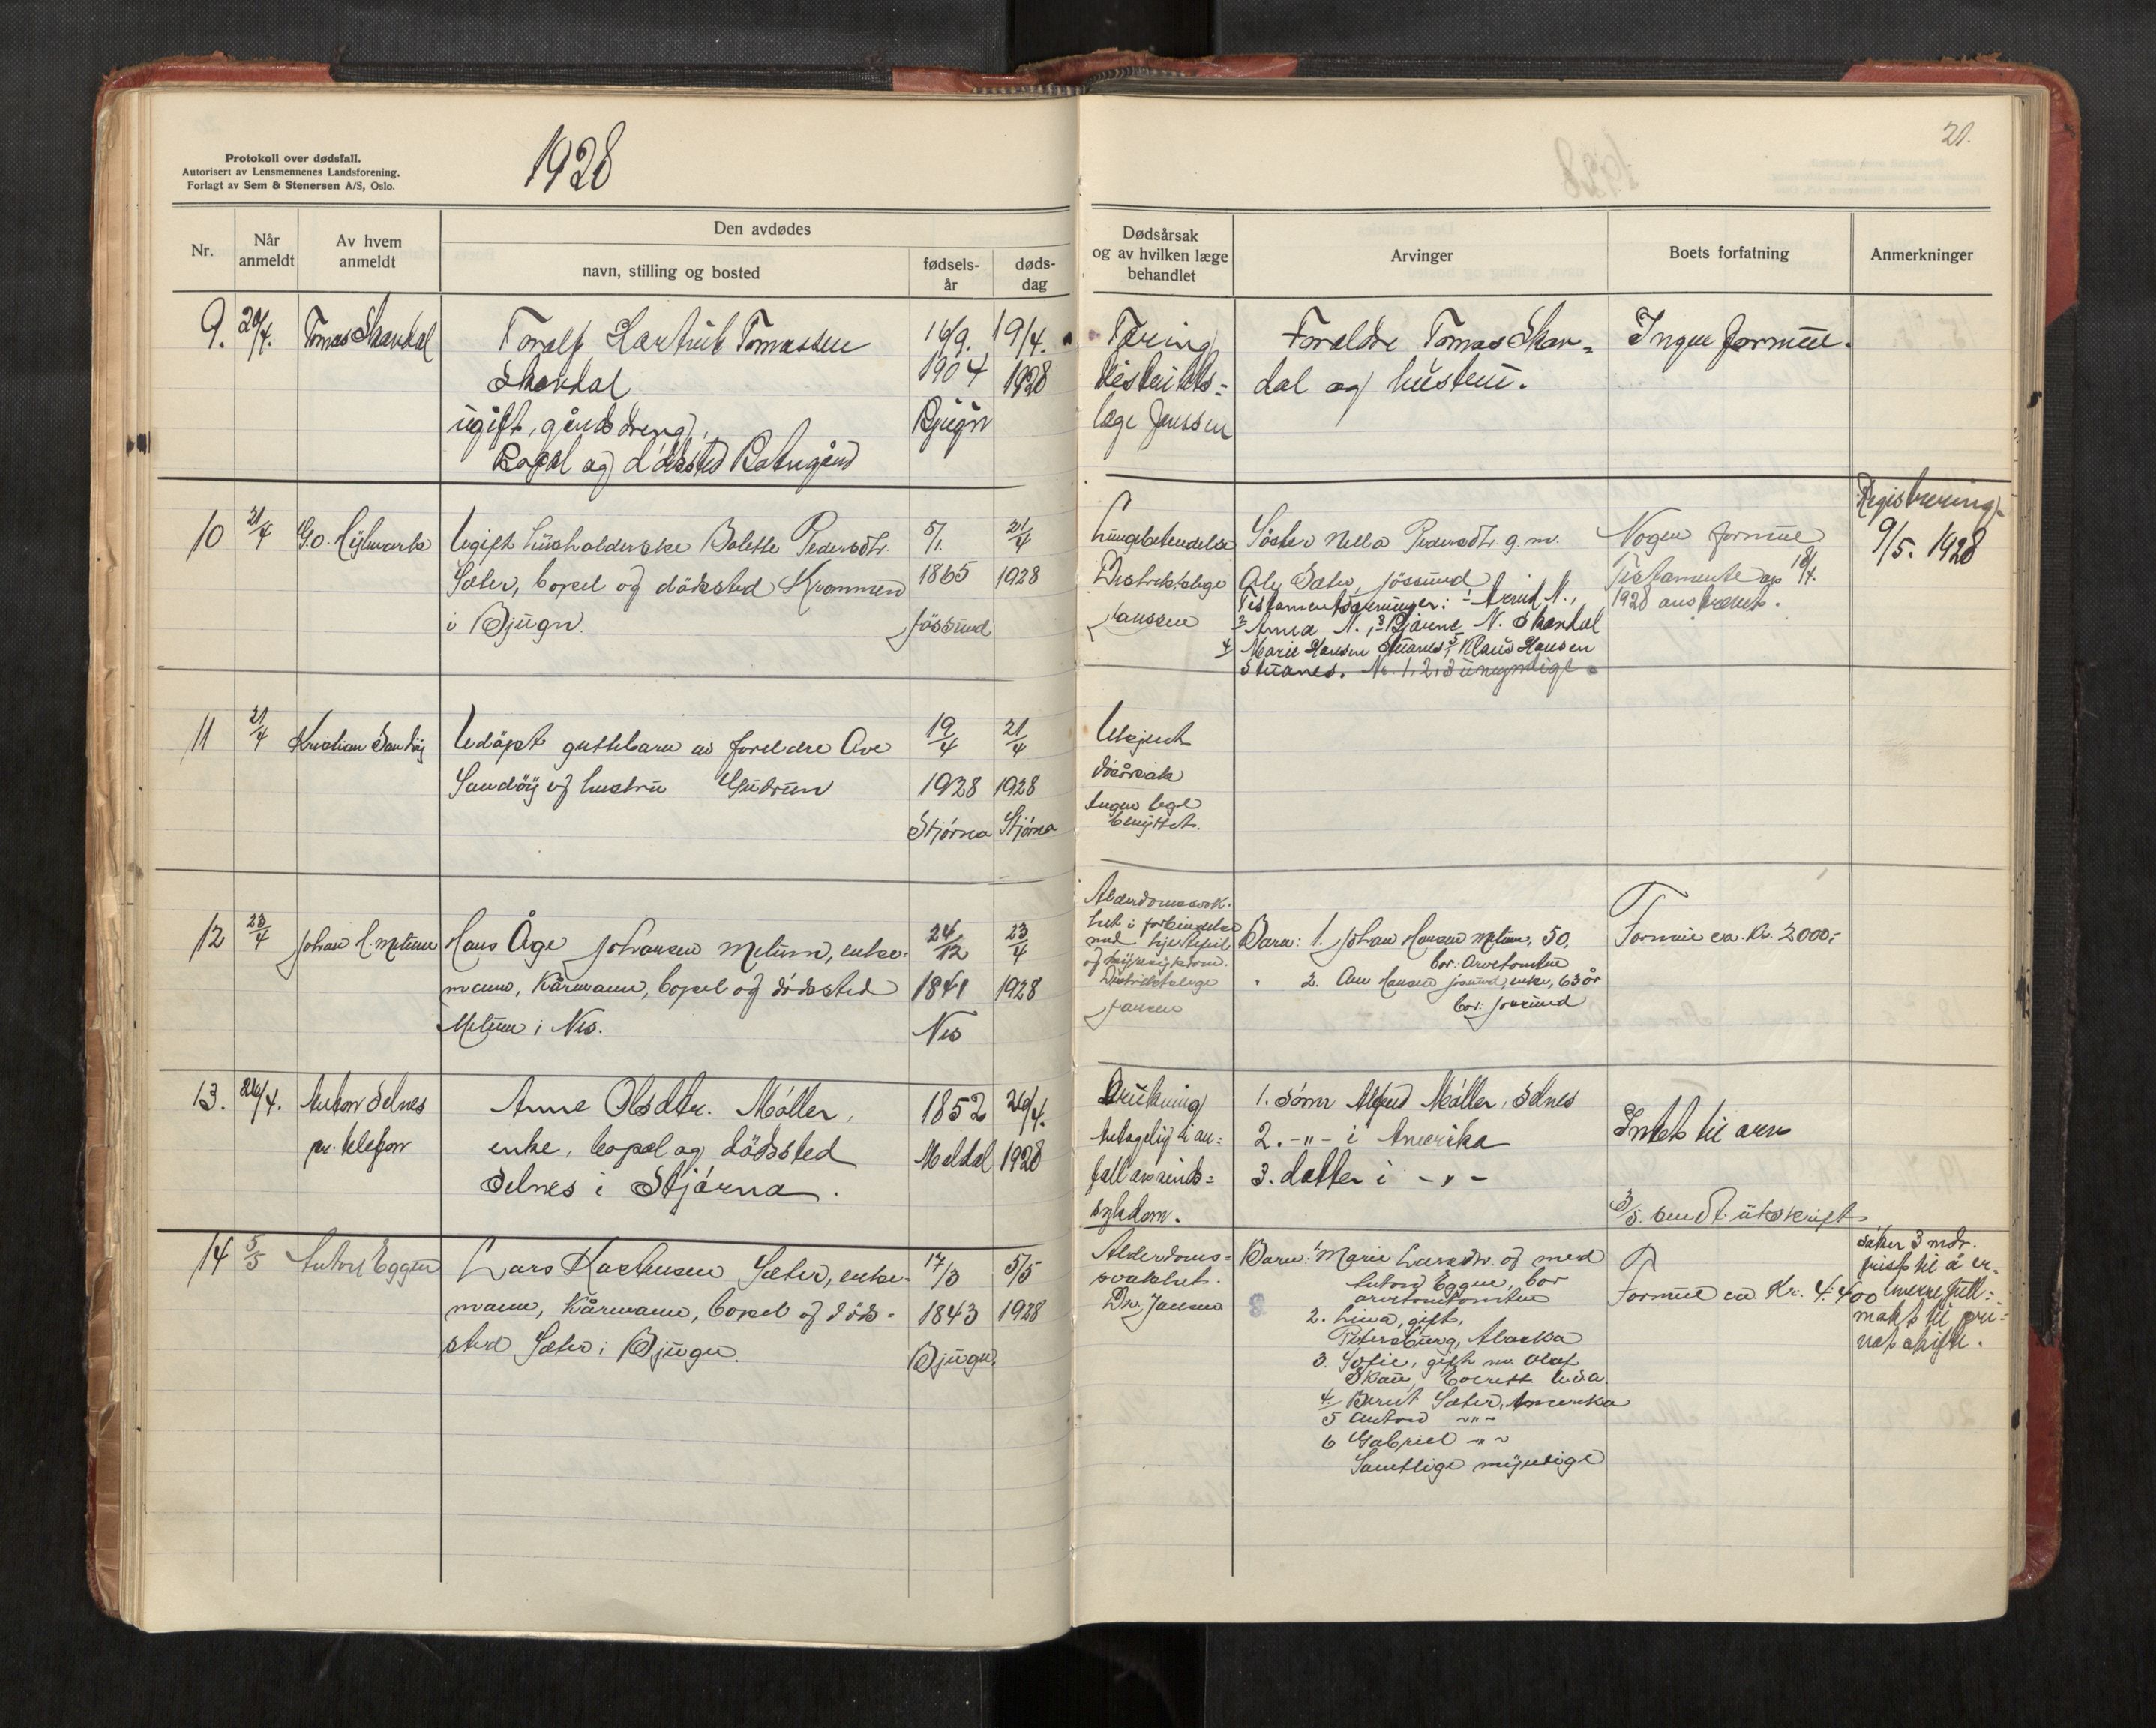 Protokoll over dødsfall.
Autorisert av Lensmennenes Landsforening.
Forlagt av Sem & Stenersen A/S, Oslo.
1928
21.
Nr.
Når anmeldt
Av hvem anmeldt
Den avdødes
navn, stilling og bosted
fødsels-år
døds-dag
Dødsårsak og av hvilken læge behandlet
Arvinger
Boets forfatning
Anmerkninger
9. 20/4. Tomas Skavdal
Toralf Hartvik Tomassen
Skavdal
ugift, gårdsdreng,
Bopel og dödsted Botngård
16/9.
1904
Bjugn
19/4.
1928
Tæring
distrikts-
læge Janssen
Foreldre Tomas Skav-
dal og hustru.
Ingen formue.
10 21/4 G.O. Hylmark
Ugift husholderske Bolette Pedersdtr.
Sæter, bopel og dödssted Kvammen
i Bjugn.
5/1.
1865
Jössund
21/4
1928
Lungebetendelse
Distriktslege
Janssen
Söster Nella Pedersdtr. g. m.
Ole Sæter, Jössund
Testamentsarvinger: 1 Arvid N.,
2 Anna N., 3 Bjarne N. Skavdal
4 Marie Hansen Stuanes, 5 Klaus Hansen
Stuanes. Nr. 1, 2, 3 umyndige.
Nogen formue
Testamente af 18/4.
1928
Registrering
9/5. 1928
11 21/4 Kristian Sandöy
Udöpt guttebarn av foreldre Ove
Sandöy og hustru Gudrun
19/4
1928
Stjörna
21/4
1928
Stjörna
Ukjent
dödsårsak
Ingen lege
benyttet.
12 23/4 Johan H. Melum
Hans Åge Johansen Melum, enke-
mann, kårmann, bopel og dödssted
Melum i Nes.
24/12
1841
Nes
23/4
1928
Alderdomssvak-
het i forbindelse
med hjertefeil
og
Distriktslege
Jansen
Barn: 1. Johan Hansen Melum, 50,
bor: Arvetomten
" 2. Hansen Jössund, enke, 63 år
bor: Jössund
Formue ca. Kr. 2000,-
13. 26/4. Anton Selnes
pr. telefon
Anne Olsdtr. Möller,
enke, bopæl og dödssted
Selnes i Stjörna.
1852
Meldal
26/4.
1928
Drukning
Antagelig i an-
fall av sinds-
sykdom.
1. Sönn Alfred Möller, Selnes
2. -"- i Amerika
3. datter i -"-
Intet til arv
3/5. sendt utskrift
14 5/5 Anton Eggen
Lars Rasmusen Sæter, enke-
mann, kårmann, bopel og död-
sted Sæter i Bjugn.
17/3
1843
Bjugn.
5/5
1928
Alderdoms-
svakhet.
Dr. Jansen
Barn: 1 Marie Larsdtr. og med
Anton Eggen, bor
arvetomten
2. Lina, gift,
Petersburg, Alaska
3. Sofie, gift m. Olaf
Skau, Everett Usa.
4. Berut Sæter, Amerika
5 Anton -"-
6 Gabriel -"-
Samtlige myndige
Formue ca. Kr. 4.400
söker 3 mdr.
frist til å er-
hverve full-
makt til pri-
vat skifte.